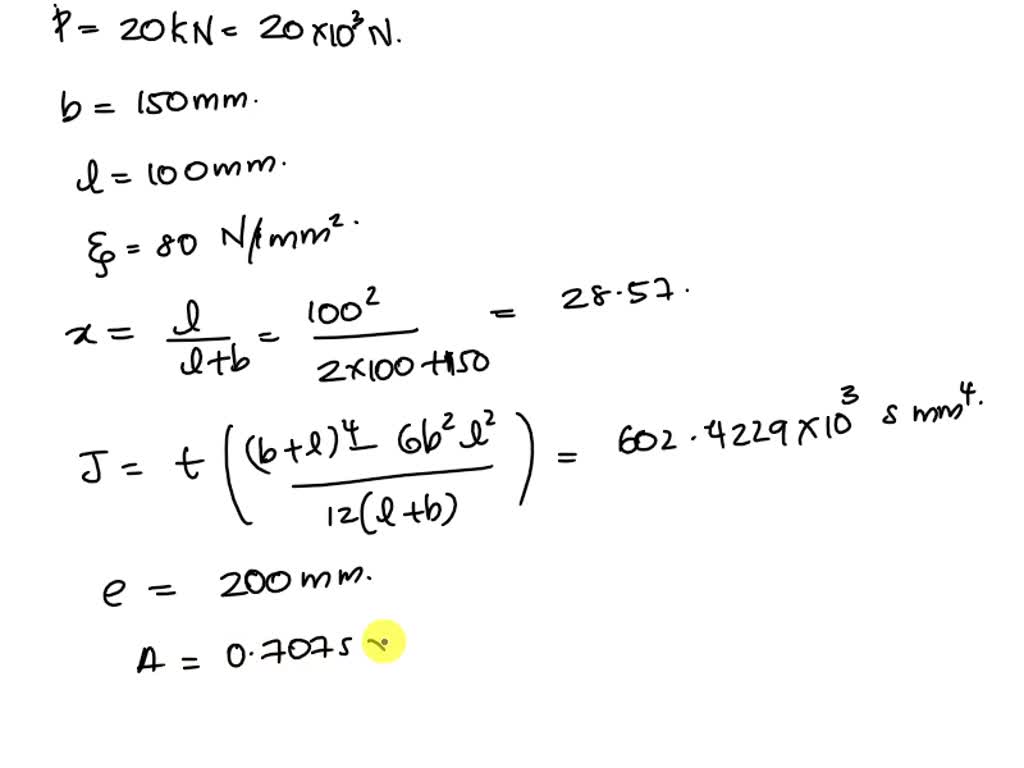 P = 20kN = 20×10³ N.
b = 150mm.
l = 100mm.
= 80 N/mm².
x = l/(l+b) = 100²/(2×100+150) = 28.57.
J = t((b+l)⁴ - 6b²l²/12(l+b)) = 602.4229×10³ s mm⁴.
e = 200mm.
A = 0.707s